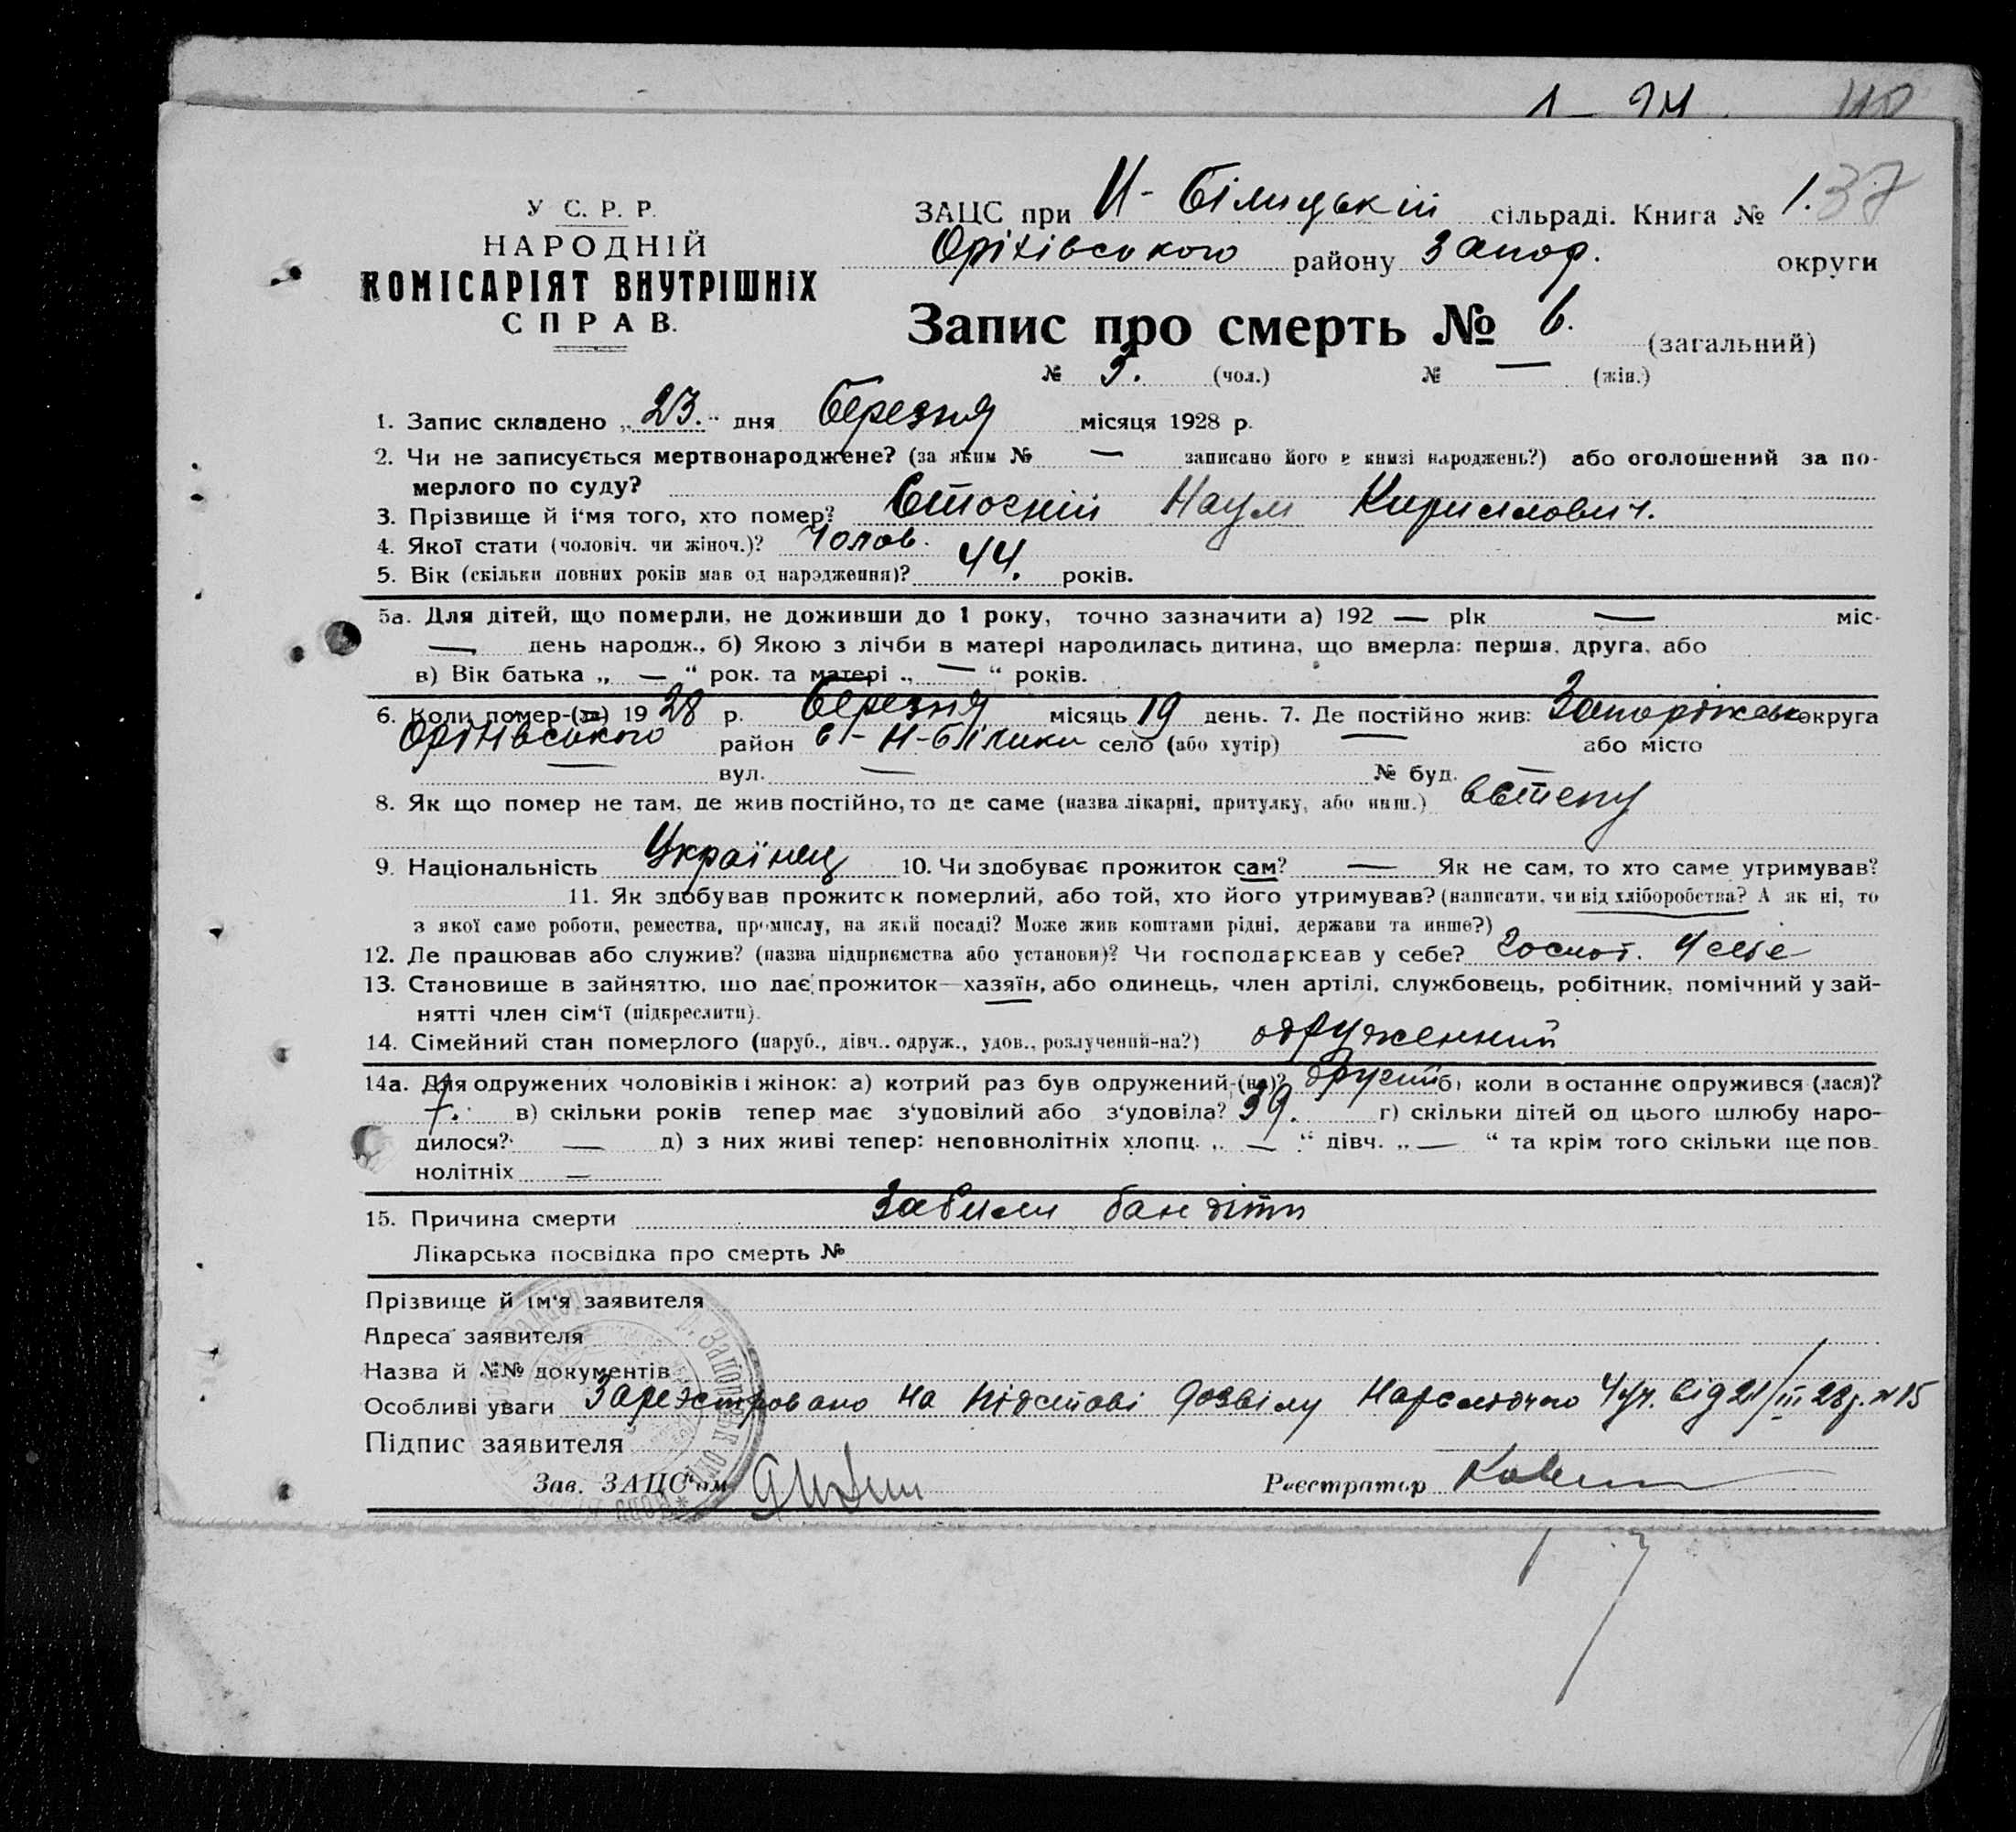 1 – 24. 40
У С. Р. Р.
НАРОДНІЙ
КОМІСАРІЯТ ВНУТРІШНІХ
СПРАВ.
ЗАЦС при Н-Білицькій сільраді. Книга № 1. 37
Оріхівського району Запор. округи
Запис про смерть № 6. (загальний)
№ 3. (чол.) № — (жін.)
1. Запис складено „23." дня березня місяця 1928 р.
2. Чи не записується мертвонароджене? (за яким № — записано його в книзі народжень?) або оголошений за по-
мерлого по суду?
3. Прізвище й і'мя того, хто помер? Наум Кирилович.
4. Якої стати (чоловіч. чи жіноч.)? Чолов.
5. Вік (скільки повних років мав од народження)? 44. років.
5а. Для дітей, що померли, не доживши до 1 року, точно зазначити а) 192 — рік — міс-
— день народж., б) Якою з лічби в матері народилась дитина, що вмерла: перша, друга, або
в) Вік батька „ — " рок. та матері „ — " років.
6. Коли помер-(ла) 1928 р. березня місяць 19 день. 7. Де постійно жив: Запоріжськ округа
Оріхівського район с. Н-Білики село (або хутір) — або місто
— вул. — № буд. —
8. Як що помер не там, де жив постійно, то де саме (назва лікарні, притулку, або инш.) вСтепу
9. Національність Українец 10. Чи здобуває прожиток сам? — Як не сам, то хто саме утримував?
11. Як здобував прожиток померлий, або той, хто його утримував? (написати, чи від хліборобства? А як ні, то
з якої саме роботи, ремества, промислу, на якій посаді? Може жив коштами рідні, держави та инше?)
12. Де працював або служив? (назва підприємства або установи)? Чи господарював у себе? Госпот. У себе
13. Становище в зайняттю, що дає прожиток—хазяїн, або одинець, член артілі, службовець, робітник, помічний у зай-
нятті член сім'ї (підкреслити).
14. Сімейний стан померлого (паруб., дівч., одруж., удов., розлучений-на?) одруженний
14а. Для одружених чоловіків і жінок: а) котрий раз був одружений-(на)? другий б) коли востаннє одружився (лася)?
7. в) скільки років тепер має з'удовілий або з'удовіла? 39. г) скільки дітей од цього шлюбу наро-
дилося? — д) з них живі тепер: неповнолітніх хлопц. „ — " дівч. „ — " та крім того скільки ще пов-
нолітніх —
15. Причина смерти Забили бандіти
Лікарська посвідка про смерть №
Прізвище й ім'я заявителя
Адреса заявителя
Назва й №№ документів
Особливі уваги Зареэстровано на підставі дозвілу Нарслідчого 4 уч. від 21/III 28 р. № 15
Підпис заявителя
Зав. ЗАЦС'ом Реєстратор